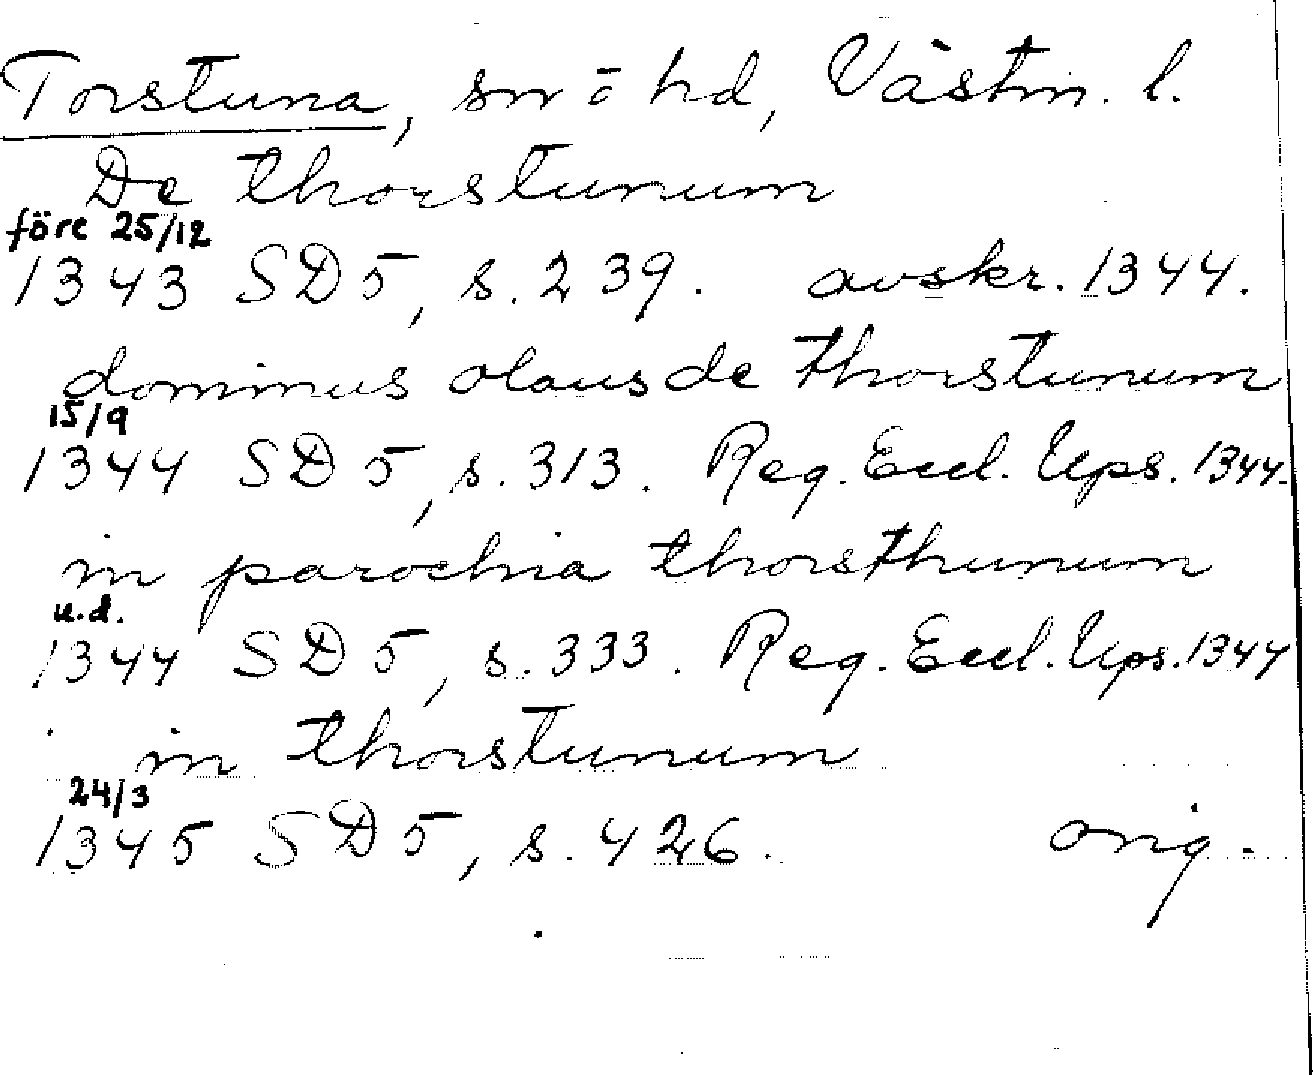 Torstuna, sn = hd, Västm. l.
De thorstunum
före 25/12
1343 SD 5, s. 239. avskr. 1344.
dominus olaus de thorstunum
15/9
1344 SD 5, s. 313. Reg. Eccl. Ups. 1344.
in parochia thorsthunum
u.d.
1344 SD 5, s. 333. Reg. Eccl. Ups. 1344
in thorstunum
24/3
1345 SD 5, s. 426. orig.